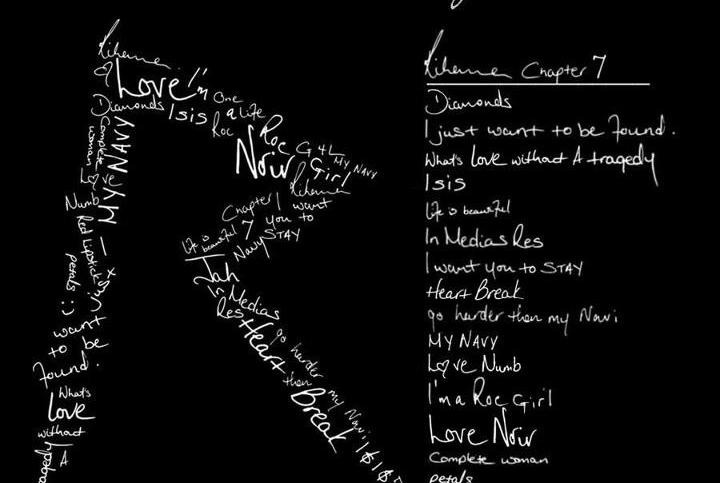 Rihanna
Love I'm
One
Diamonds
Isis
a Life
Roc
Roc
G4L
MY NAVY
Noir
Girl
Rihanna
Complete
woman
Love
MY NAVY
Numb
Red Lipstick
petals :)
I want
to be
found.
What's
love
without
A
tragedy
Chapter
7
I want
you to
STAY
Life is
beautiful
Navy
Jah
In Medias
Res
Heart
Break
go harder
then my Navi
Rihanna Chapter 7
Diamonds
I just want to be found.
What's love without A tragedy
Isis
Life is beautiful
In Medias Res
I want you to STAY
Heart Break
go harder then my Navi
MY NAVY
Love Numb
I'm a Roc Girl
Love Noir
Complete woman
petals